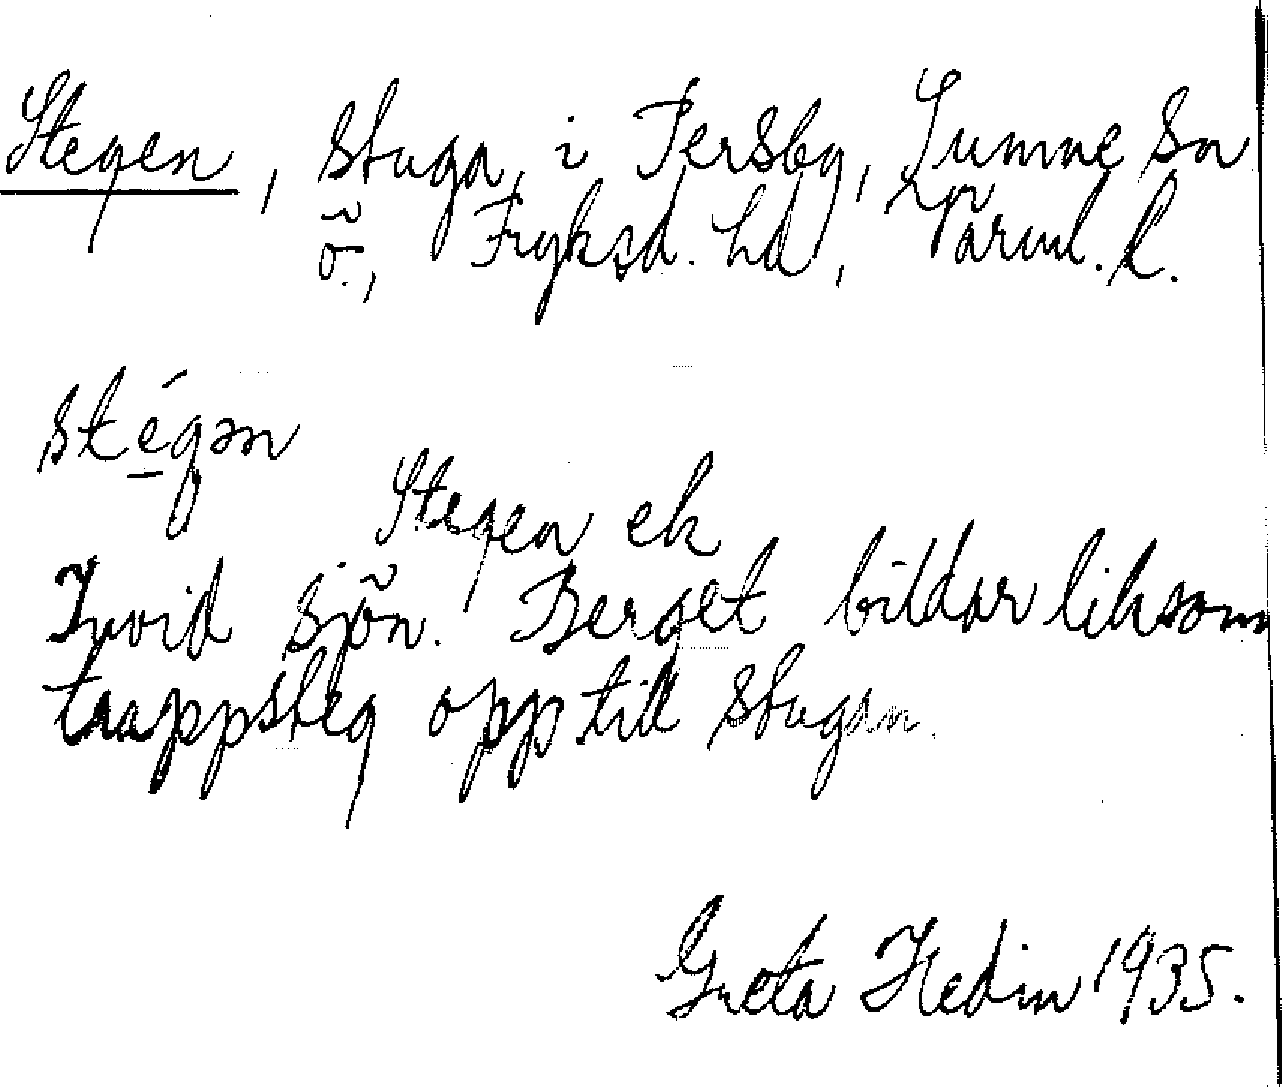 Stegen, stuga i Persby, Sunne sn
ö., Fryksd. hd, Värml. l.
stégən
Stegen ek
Invid sjön. Berget bildar liksom
trappsteg opp till stugan.
Greta Hedin 1935.